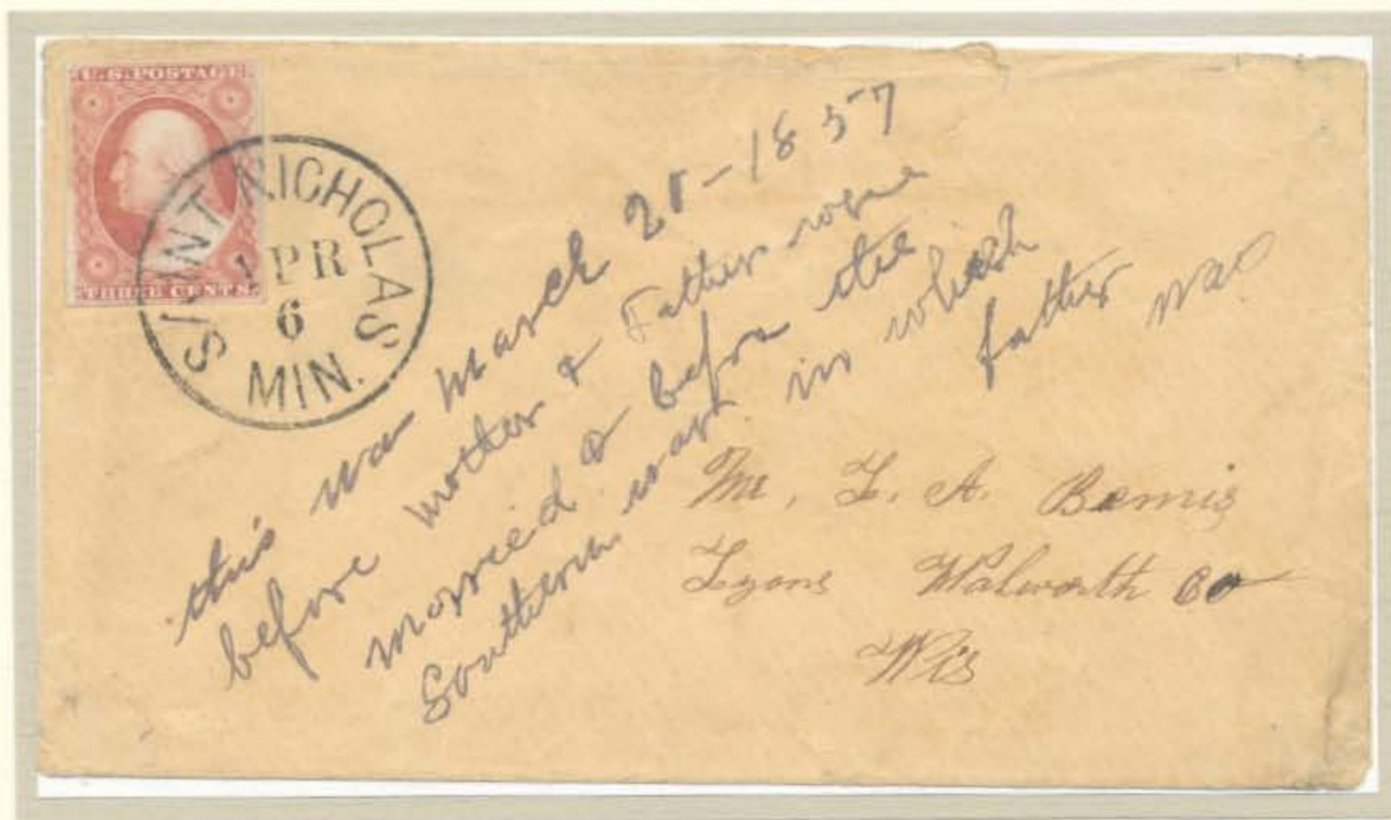 U.S. POSTAGE
THREE CENTS.
SAINT NICHOLAS
APR
6
MIN.
this was March 1857
before mother & Father were
married & before the
Southern war in which
father was
Mr, L. A. Bemis
Lyons Walworth Co
Wis